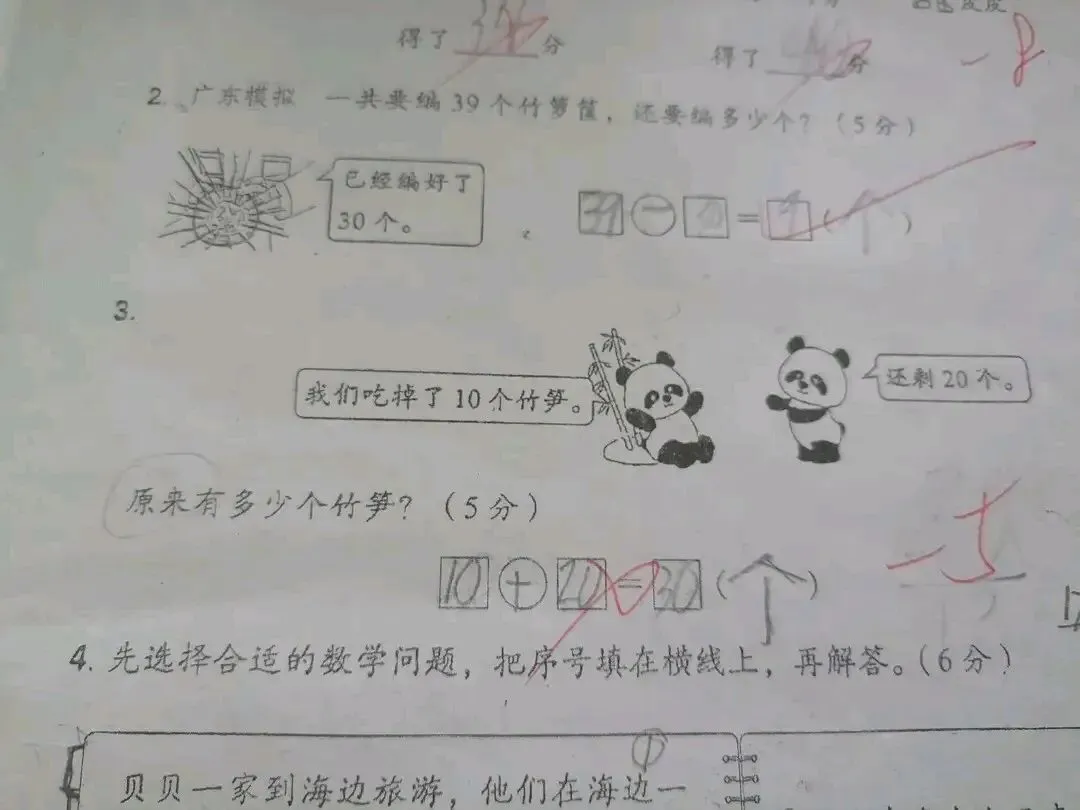 得了 分
得了 分
-8
2. 广东模拟 一共要编39个竹箩筐，还要编多少个？（5分）
已经编好了
30个。
39-30=9（个）
3.
我们吃掉了10个竹笋。
还剩20个。
原来有多少个竹笋？（5分）
-5
10+20=30（个）
4. 先选择合适的数学问题，把序号填在横线上，再解答。（6分）
①
贝贝一家到海边旅游，他们在海边一